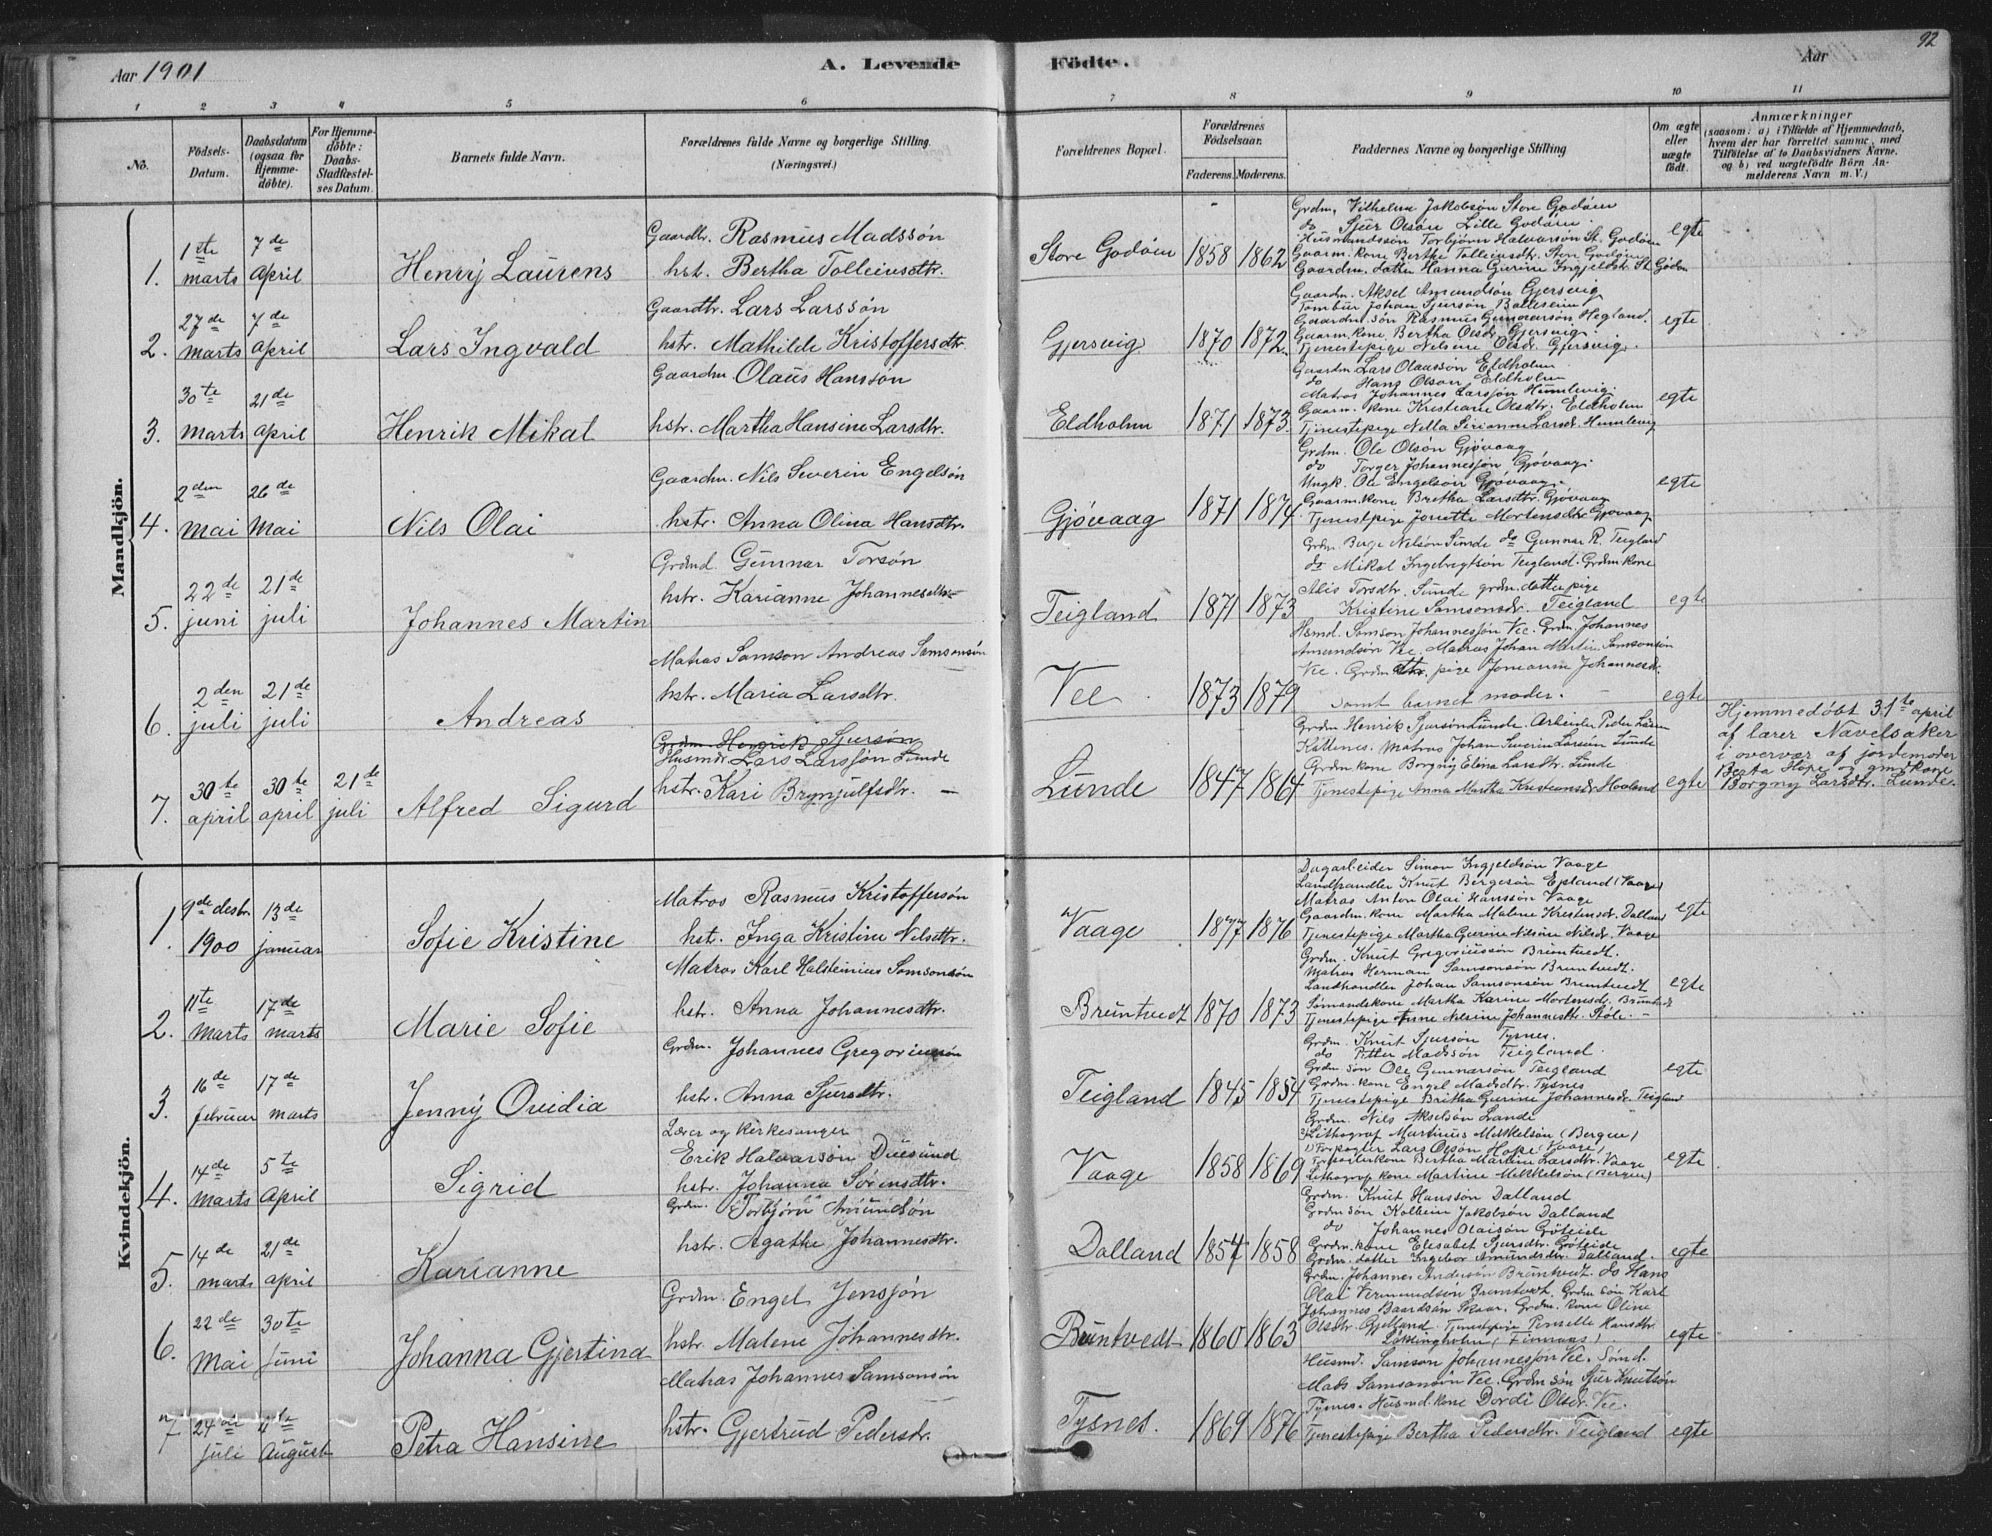 Aar 1901
A. Levende
Födte.
Aar
92
1 2 3 4 5 6 7 8 9 10 11
No.
Födsels-Datum.
Daabsdatum (ogsaa for Hjemme-döbte).
For Hjemme-döbte: Daabs-Stadfæstel-ses Datum.
Barnets fulde Navn.
Forældrenes fulde Navne og borgerlige Stilling. (Næringsvei.)
Forældrenes Bopæl.
Forældrenes Födselsaar.
Faderens. Moderens.
Faddernes Navne og borgerlige Stilling
Om ægte eller uægte födt.
Anmærkninger
(saasom: a) i Tilfælde af Hjemmedaab, hvem der har forrettet samme, med Tilföielse af to Daabsvidners Navne. og b) ved uægtefödte Börn An-melderens Navn m. V.)
Mandkjön.
1. 1ste marts 7de April Henrÿ Laurens
Gaardbr. Rasmus Madssön
hst. Bertha Tolleivsdtr.
Store Godöen 1858 1862
Grdm. Vilhelm Jakobsön Store Godöen
do Sjur Olsön Lille Godöen
Husmandssön Torbjörn Halvarson St. Godöen
Gaarm. kone Berthe Tolleivsdtr. Store Godöen
Gaardm. datter Hanna Gurine Ingjeldsdtr. St. Godöen
egte
2. 27de marts 7de april Lars Ingvald
Gaardbr. Lars Larssön
hstr. Mathilde Kristoffersdtr
Gjersvig 1870 1872.
Gaardm. Aksel Amundsön Gjersvig
Johan Sjursön
Gaardm. sön Rasmus Gunnarsön Hegland.
Gaarm. kone Bertha Olsdr. Gjersvig.
Tjenestepige Nelsine Olsdr. Gjersvig.
egte
3. 30te marts 21de april Henrik Mikal
Gaardm Olaus Hanssön
hstr. Martha Hansine Larsdtr.
Eldholm 1871 1873.
Gaardm Lars Olaussön Eldholm
do Hans Olson Eldholm
Matros Johannes Larssön Humlevig.
Gaarm. kone Kristiane Olsdtr. Eldholm
Tjenestepige Nella Sirianna Larsdr. Humlevig
egte
4. 2den mai 26de mai Nils Olai
Gaardm. Nils Severin Engelsön
hstr. Anna Olina Hansdtr.
Gjövaag 1871 1874
Grdm. Ole Olsön Gjövaag
do Torger Johannessön Gjövaag.
Ungk. Ole Engelson Gjövaag.
Gaarm. kone Bretha Larsdtr. Gjövaag
Tjenestepige Jonette Mortensdtr Gjövaag
egte
5. 22de juni 21de juli Johannes Martin
Grdmd. Gunnar Torsön
hstr. Karianne Johannesdtr.
Teigland 1871 1873
Grdm. Birge Nelsön Sunde do Gunnar R. Teigland
do Mikal Ingebrigtsön Teigland. Grdm kone
Alis Torsdtr. Sunde grdm. datter pige
Kristine Samsonsdr. Teigland
egte
6. 2den juli 21de juli Andreas
Matros Samson Andreas Samsonsön
hstr. Maria Larsdtr.
Vee 1873 1879
Hsmd. Samson Johannessön Vee. Grdm. Johannes
Amundsön Vee. Matros Johan Martin Samsonsön
Vee. Grdm dtr. pige Jomanna Johannesdr.
samt barnets moder.
egte
7. 30te april 30te april 21de juli Alfred Sigurd
Grdm Henrik Sjursön
Husmdr Lars Larssön Lunde
hstr. Kari Brynjulfsdtr.
Lunde 1847 1861
Grdm Henrik Sjursön Lunde. Arbeider Peder Larsen
Kattenes. Matros Johan Severin Larsön Lunde
Grdm kone Borgny Elina Larsdtr. Lunde
Tjenestepige Anna Martha Kristiansdr. Haaland
egte
Hjemmedöbt 31te april
af lærer Navelsaker
i overvær af jordemoder
Berta Hope og gmkone
Borgny Larsdtr. Lunde.
Kvindekjön.
1. 9de desbr. 1900 13de januar Sofie Kristine
Matros Rasmus Kristoffersön
hst. Inga Kristine Nelsdtr.
Vaage 1877 1876
Dagarbeider Simon Ingjeldsön Vaage
Landhandler Knut Bergesön Epland (Vaage)
Matros Anton Olai Hanssön Vaage
Gaardm. kone Martha Malene Kristensdr. Dalland
Tjenestepige Martha Gurine Nilsine Nilsdr. Vaage
egte
2. 11te Marts 17de marts Marie Sofie
Matros Karl Halsteinius Samsonsön
hstr. Anna Johannesdtr.
Bruntvedt 1870 1873
Grdm. Knut Gregoriussön Bruntvedt.
Matros Herman Samsonsön Bruntvedt.
Landhandler Johan Samsonsön Bruntvedt
Sömandskone Martha Karine Mortensdr. Bruntvedt
Tjenestepige Anne Nilsine Johannesdtr. Stöle.
egte
3. 16de februar 17de marts Jennÿ Ovidia
Grdm. Johannes Gregoriussön
hst. Anna Sjursdtr.
Teigland 1845 1854
Grdm. Knut Sjursön Tysnes.
do Peter Madssön Teigland.
Grdm. sön Ole Gunnarsön Teigland
Grdm. kone Engel Madsdtr. Tysnes
Tjenestepige Britha Gurine Johannesdr. Teigland
egte
4. 14de Marts 5te April Sigrid
Lærer og kirkesanger
Erik Halvarsön Duesund
hstr. Johanna Sörensdtr.
Vaage 1858 1869
Grdm. Nils Akselsön Lande
Lithograf Martinus Mikkelsön (Bergen)
Lars Olsön Hope Vaage
kone Bertha Martine Larsdtr. Vaage
Lithograf kone Martine Mikkelsön (Bergen)
egte
5. 14de marts 21de april Karianne
Grdm. Torbjörn Amundsön
hstr. Agathe Johannesdtr.
Dalland 1854 1858
Grdm. Knut Hanssön Dalland
Grdm sön Kolbein Jakobsön Dalland
do Johannes Olaisön Göteide
Grdm. kone Elisabet Sjursdtr. Göteide
Grdm. datter Ingebor Amundsdr. Dalland.
egte
6. 22de Mai 30te Juni Johanna Gjertina
Grdm. Engel Jenssön
hstr. Malene Johannesdtr.
Bruntvedt 1860 1863
Grdm. Johannes Andersön Bruntvedt. do Hans
Olai Vermundsön Bruntvedt. Grdm sön Karl
Johannes Baardsön Skaar. Grdm. kone Oline
Olsdtr. Gjelland. Tjenestepige Pernelle Hansdtr.
Löklingholm (Finnaas).
egte
7 24de juli 4de August Petra Hansine
Matros Johannes Samsonsön
hstr. Gjertrud Pedersdr.
Tysnes. 1869 1876
Husmd. Samson Johannessön Vee. Sömd.
Mads Samsonsön Vee. Grdm sön Sjur Knutsön
Tysnes. Husmd. kone Dordi Olsdr. Vee.
Tjenestepige Bertha Pedersdtr. Teigland
egte